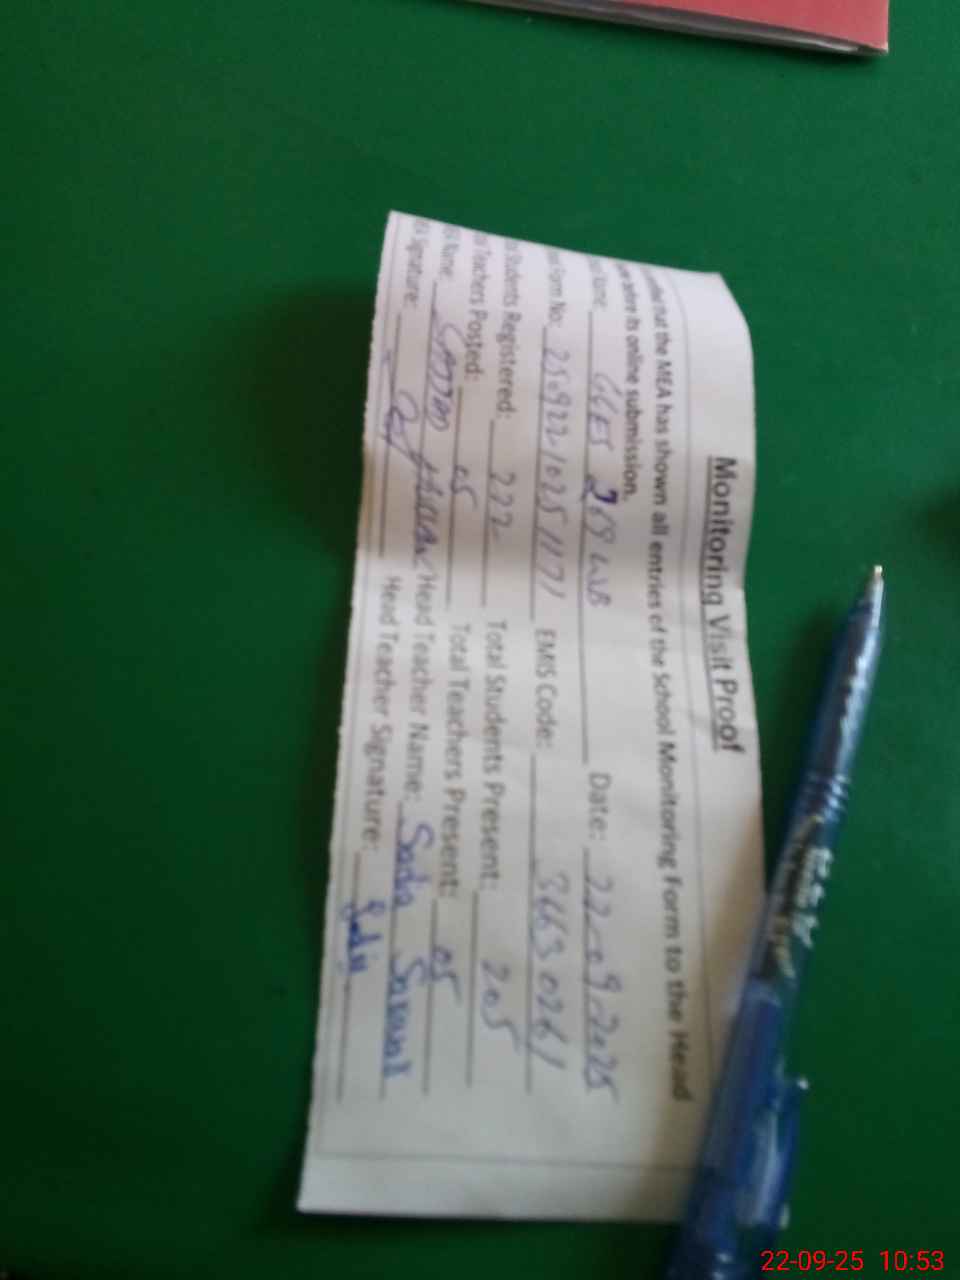 Monitoring Visit Proof
that the MEA has shown all entries of the School Monitoring Form to the Head
before its online submission.
Name: GGES 269 WB Date: 22-09-2025
Form No: 250922-102511171 EMIS Code: 36630261
Students Registered: 222 Total Students Present: 205
Teachers Posted: 05 Total Teachers Present: 05
Name: Hassan Head Teacher Name: Sadia
Signature: Head Teacher Signature: Sadia
22-09-25 10:53